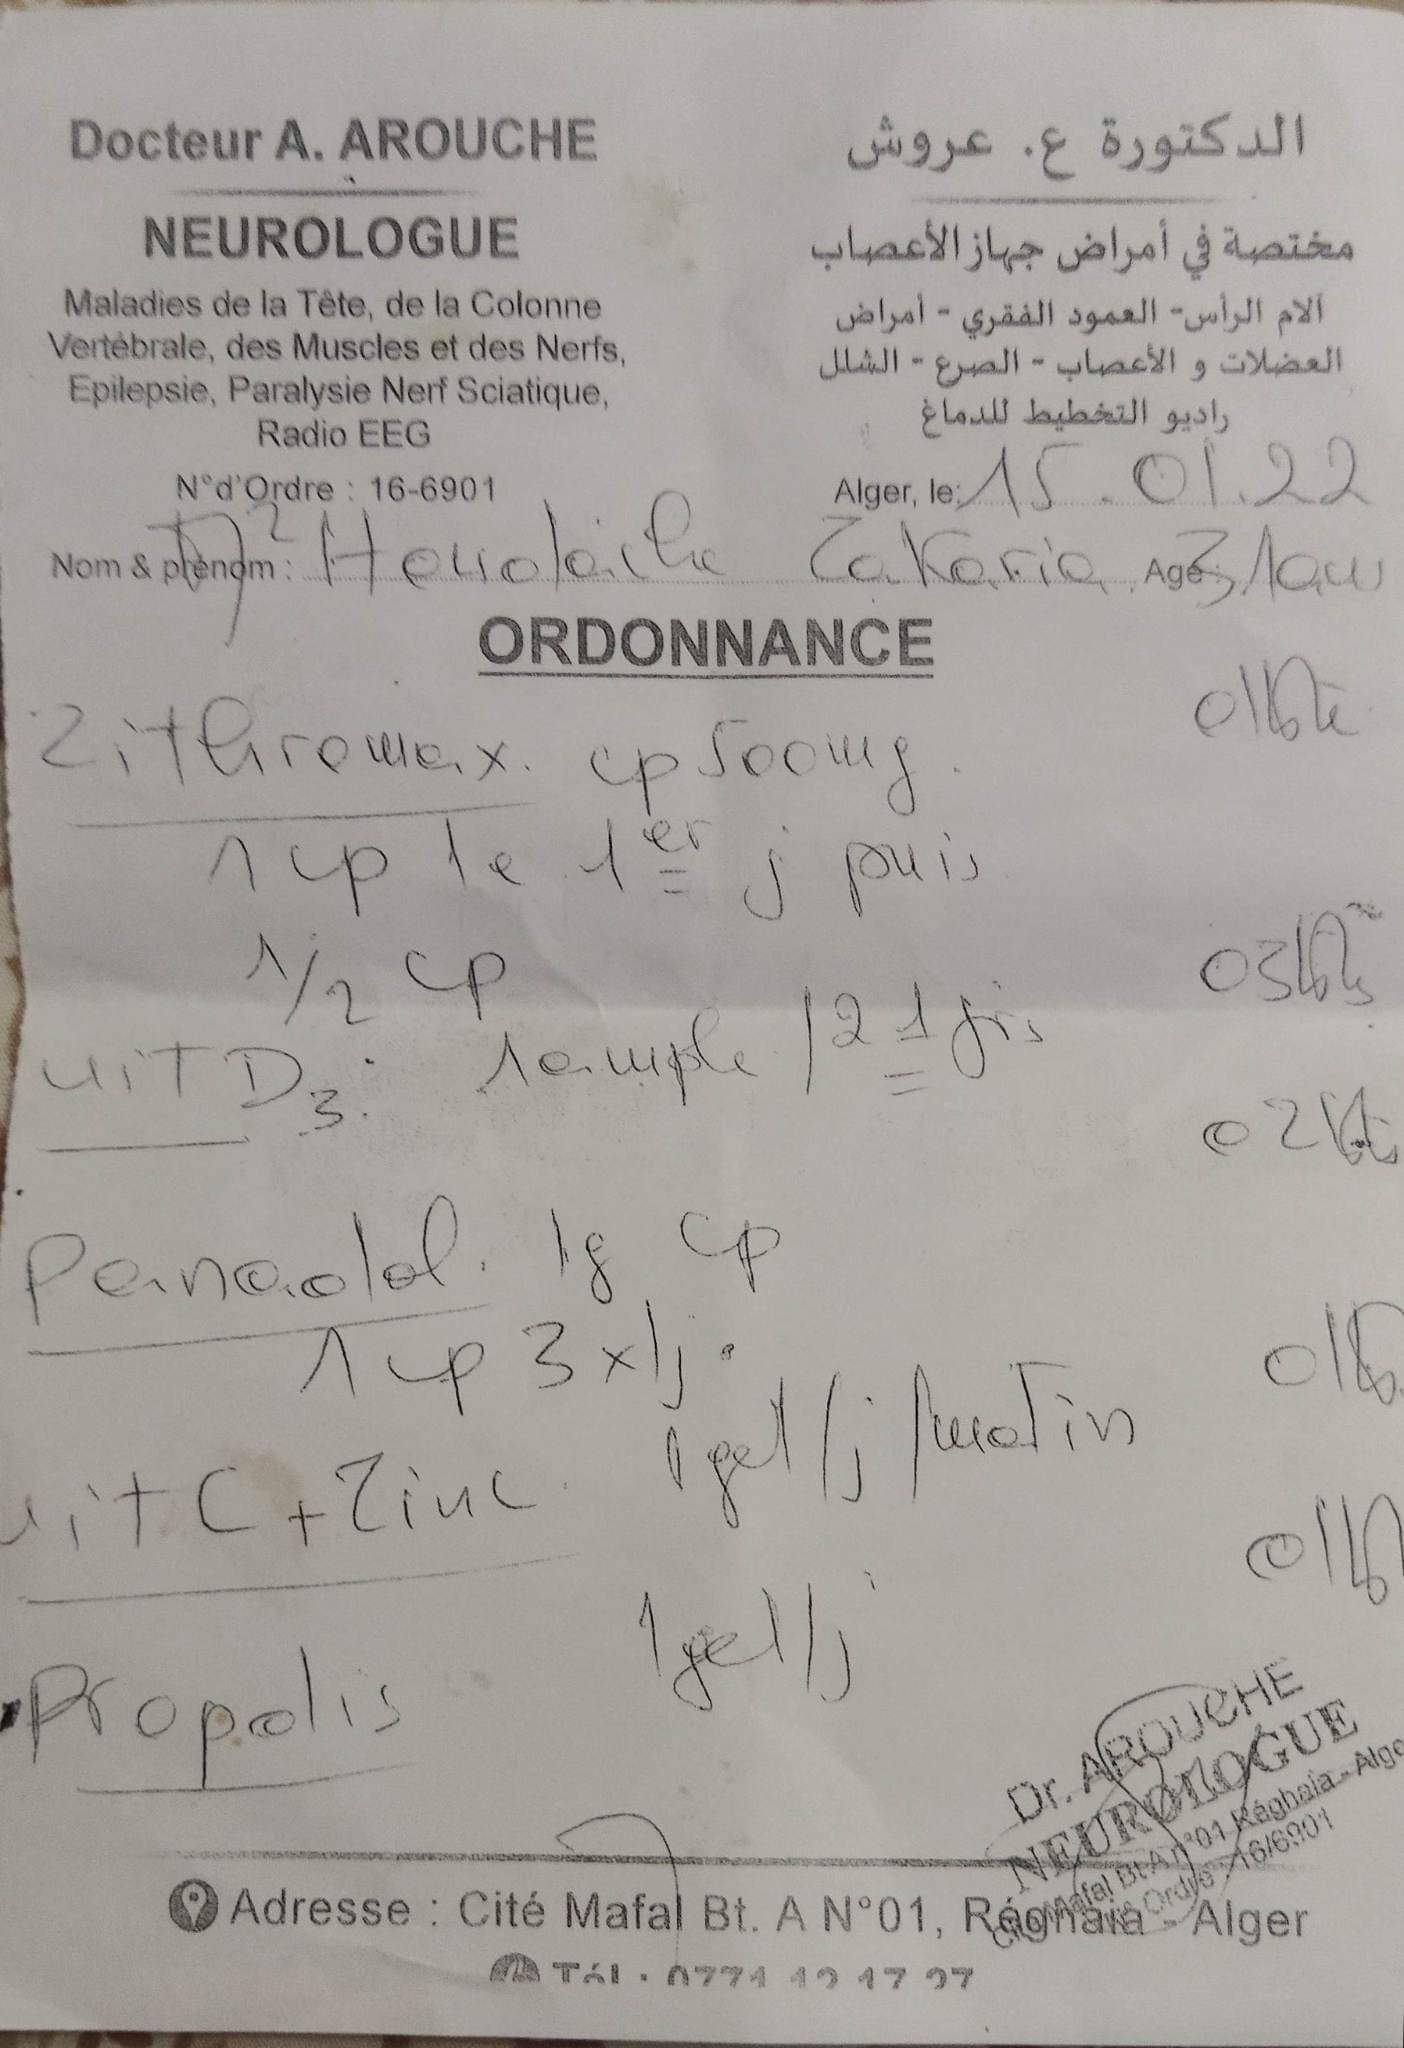 Docteur A. AROUCHE
NEUROLOGUE
Maladies de la Tête, de la Colonne
Vertébrale, des Muscles et des Nerfs,
Epilepsie, Paralysie Nerf Sciatique,
Radio EEG
N°d'Ordre : 16-6901
الدكتورة ع. عروش
مختصة في أمراض جهاز الأعصاب
آلام الرأس - العمود الفقري - أمراض
العضلات و الأعصاب - الصرع - الشلل
راديو التخطيط للدماغ
Alger, le: 15.01.22
Nom & prénom : Zakaria Age: 31 ans
ORDONNANCE
Zithromax. cp 500mg.
1 cp le 1er j puis
1/2 cp
vit D3: 1 ampole / 21 jrs
Panadol. 1g cp
1 cp 3 x/j.
vit C + Zinc. 1 gel/j/matin
Propolis 1 gel/j
Dr. AROUCHE
NEUROLOGUE
Cité Mafal Bt.A n°01 Réghaia - Alger
Ordre 16/6901
Adresse : Cité Mafal Bt. A N°01, Réghaia - Alger
Tél : 0771 12 17 27